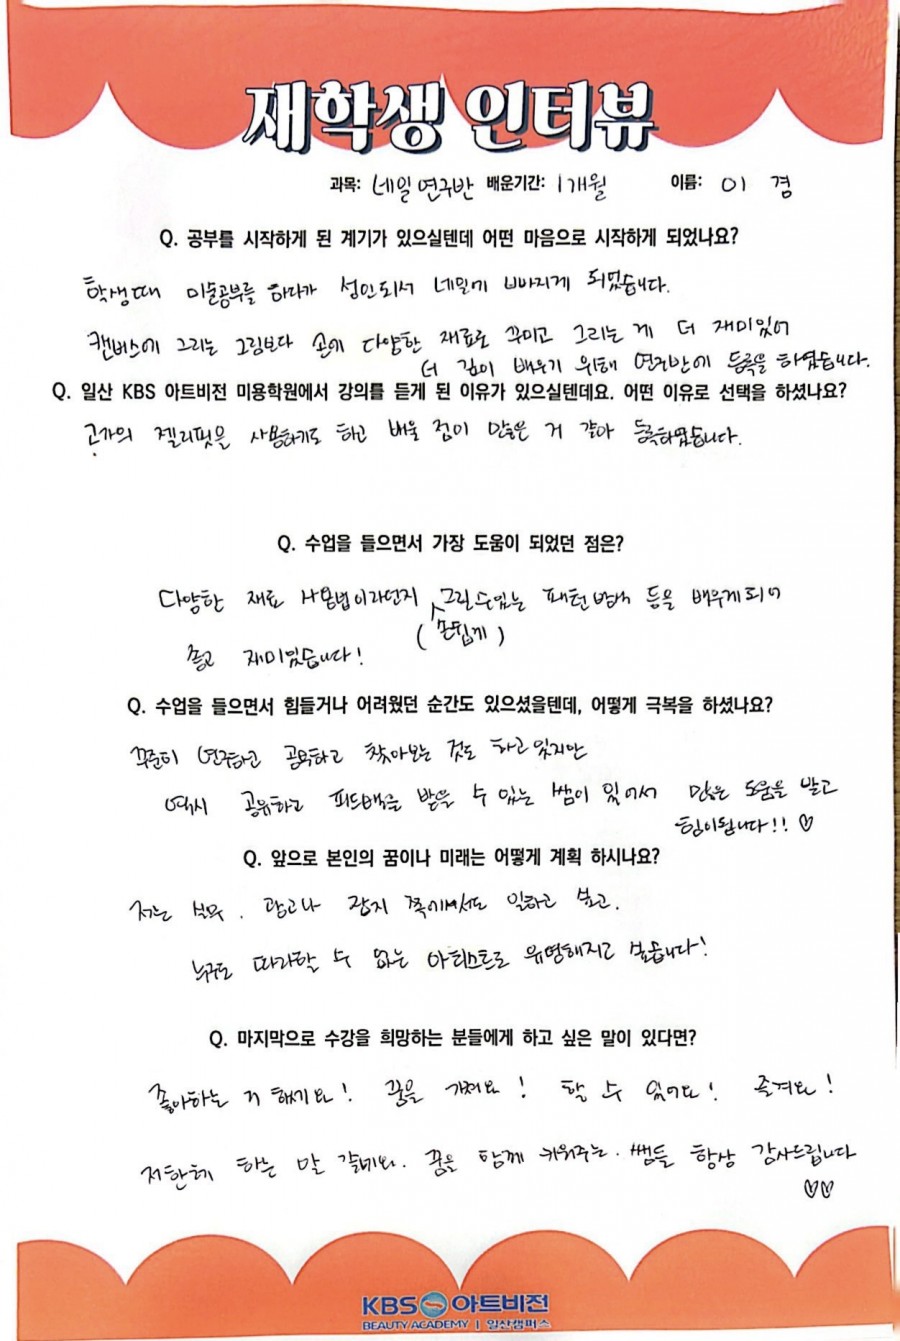 재학생 인터뷰
과목: 네일 연구반 배운기간: 1개월 이름: 이 겸
Q. 공부를 시작하게 된 계기가 있으실텐데 어떤 마음으로 시작하게 되었나요?
학생때 미술공부를 하다가 성인되서 네일에 빠지게 되었습니다.
캔버스에 그리는 그림보다 손에 다양한 재료로 꾸미고 그리는 게 더 재미있어
더 깊이 배우기 위해 연구반에 등록을 하였습니다.
Q. 일산 KBS 아트비전 미용학원에서 강의를 듣게 된 이유가 있으실텐데요. 어떤 이유로 선택을 하셨나요?
고가의 젤리핏을 사용하기도 하고 배울 점이 많은 거 같아 등록하였습니다.
Q. 수업을 들으면서 가장 도움이 되었던 점은?
다양한 재료 사용법이라던지 그릴수있는 패턴 방식 등을 배우게되어
(손쉽게)
좋고 재미있습니다!
Q. 수업을 들으면서 힘들거나 어려웠던 순간도 있으셨을텐데, 어떻게 극복을 하셨나요?
꾸준히 연구하고 공부하고 찾아보는 것도 하고 있지만
역시 공유하고 피드백을 받을 수 있는 쌤이 있어서 많은 도움을 받고
힘이됩니다!! ♡
Q. 앞으로 본인의 꿈이나 미래는 어떻게 계획 하시나요?
저는 광고나 잡지 쪽에서도 일하고 싶고.
누구도 따라할 수 없는 아티스트로 유명해지고 싶습니다!
Q. 마지막으로 수강을 희망하는 분들에게 하고 싶은 말이 있다면?
좋아하는 거 하세요! 꿈을 가져요! 할 수 있어요! 즐겨요!
저한테 하는 말 같네요. 꿈을 함께 키워주는. 쌤들 항상 감사드립니다
♡♡
KBS 아트비전
BEAUTY ACADEMY | 일산캠퍼스